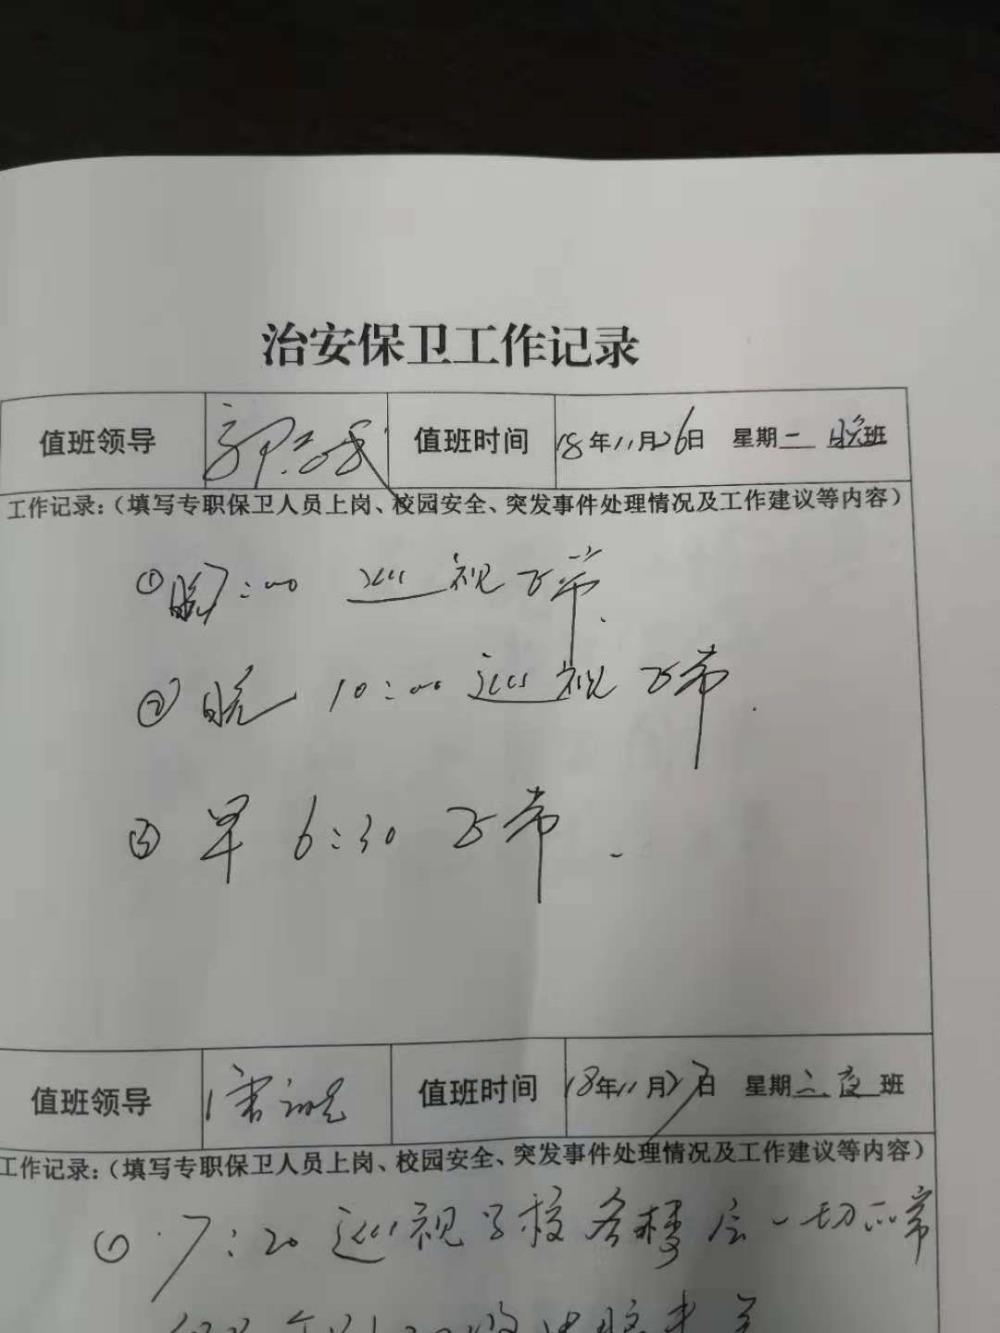 治安保卫工作记录
值班领导 值班时间 18年11月26日 星期二 晚班
工作记录:（填写专职保卫人员上岗、校园安全、突发事件处理情况及工作建议等内容）
①晚7:00 巡视正常.
②晚 10:00 巡视正常.
③ 早 6:30 正常.
值班领导 值班时间 18年11月27日 星期二 夜班
工作记录:（填写专职保卫人员上岗、校园安全、突发事件处理情况及工作建议等内容）
① 7:20 巡视学校各楼层一切正常